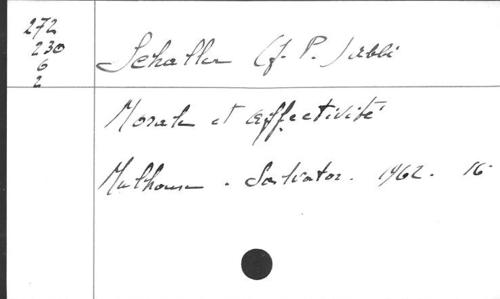 272
230
6
2
Schaller (J. P.) abbé
Morale et affectivité
Mulhouse. Salvator. 1962. 16